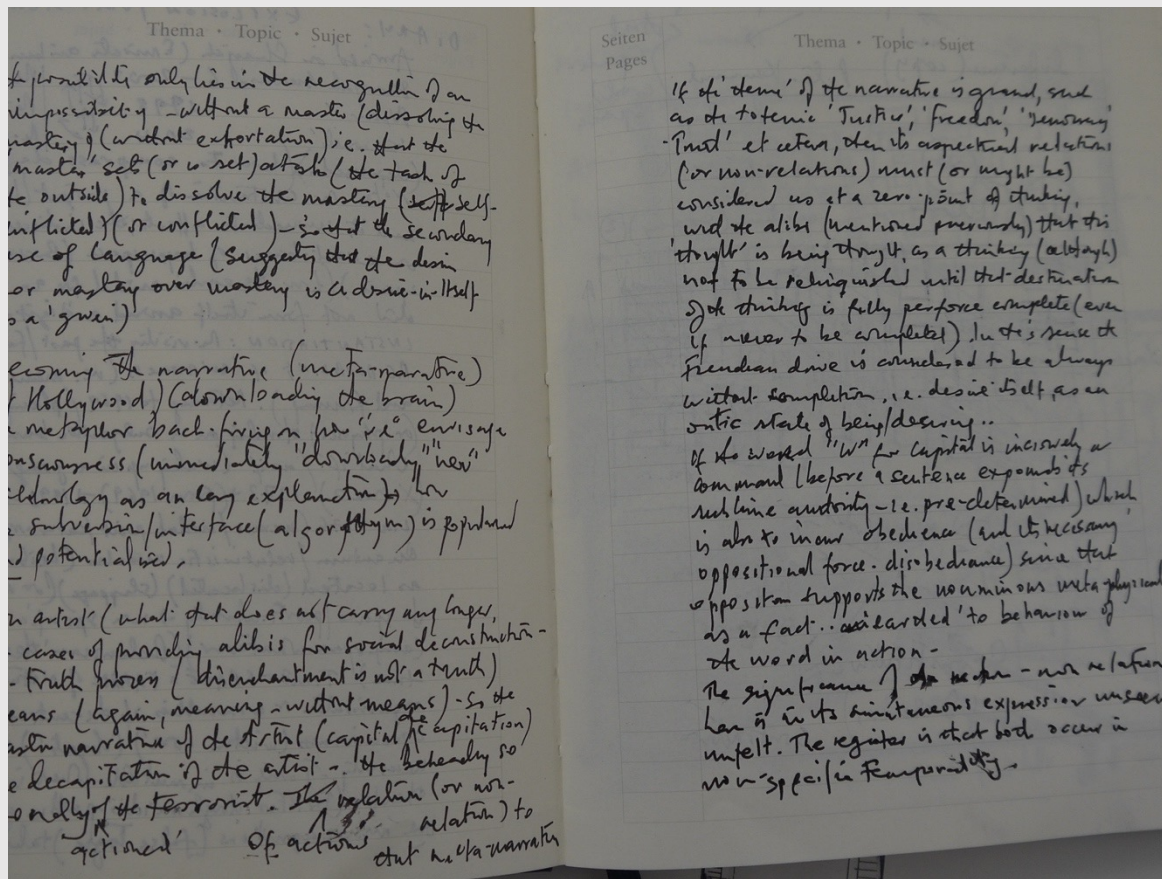 Thema · Topic · Sujet
possibility only lies in the recognition of an
impossibility - without a master (dissolving the
mastery of (without exhortation) i.e. that the
master sets (or is set) a task (the task of
outside) to dissolve the mastery (self-
inflicted) (or conflicted) - so that the secondary
use of language (suggests that the desire
or mastery over mastery is a desire-in-itself
a 'given')
the narrative (meta-narrative)
Hollywood) (downloading the brain)
metaphor back-firing on how 'we' envisage
consciousness (immediately "downloading" "new"
technology as an easy explanation) how
subversion/interface (algorithym) is populated
potentialised.
artist (what that does not carry any longer,
cases of providing alibis for social deconstruction -
truth process (disenchantment is not a truth)
means (again, meaning - without means) - so the
narrative of the Artist (capital de capitation)
decapitation of the artist - the beheading so
of the terrorist. The relation (or non-
relation) to
actioned' of actions that meta-narrative
Seiten
Pages
Thema · Topic · Sujet
If the 'theme' of the narrative is grand, such
as the totemic 'Justice', 'freedom',
'Trust' et cetera, then its aspectual relations
(or non-relations) must (or might be)
considered as at a zero-point of thinking,
and the alibi (mentioned previously) that this
'thought' is being thought, as a thinking (although)
not to be relinquished until that destination
of the thinking is fully perforce complete (even
if never to be completed). In this sense the
Freudian drive is considered to be always
without completion, i.e. desire itself, as an
ontic state of being/desiring..
If the word "W" for capital is incisively a
command (before a sentence expounds its
sublime authority - i.e. pre-determined) which
is also to incur obedience (and its necessary
oppositional force - disobedience) since that
opposition supports the nouminous meta-physical
as a fact.. to behaviour of
the word in action -
The significance of the - non relation
here is in its simultaneous expression unseen
unfelt. The register is that both occur in
non-specific temporality.